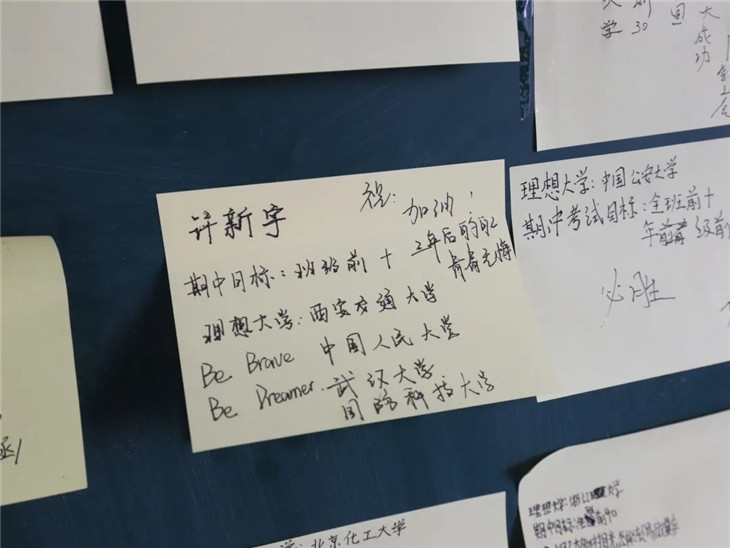 计新宇
祝:加油!
三年后的职
青春无悔
期中目标:班级前十
理想大学:西安交通大学
Be Brave 中国人民大学
Be Dreamer. 武汉大学
国防科技大学
理想大学:中国公安大学
期中考试目标:全班前十
年 级前
必胜
大成功
学 30
学:北京化工大学
理想大学:浙江 大学
期中目标: 前90